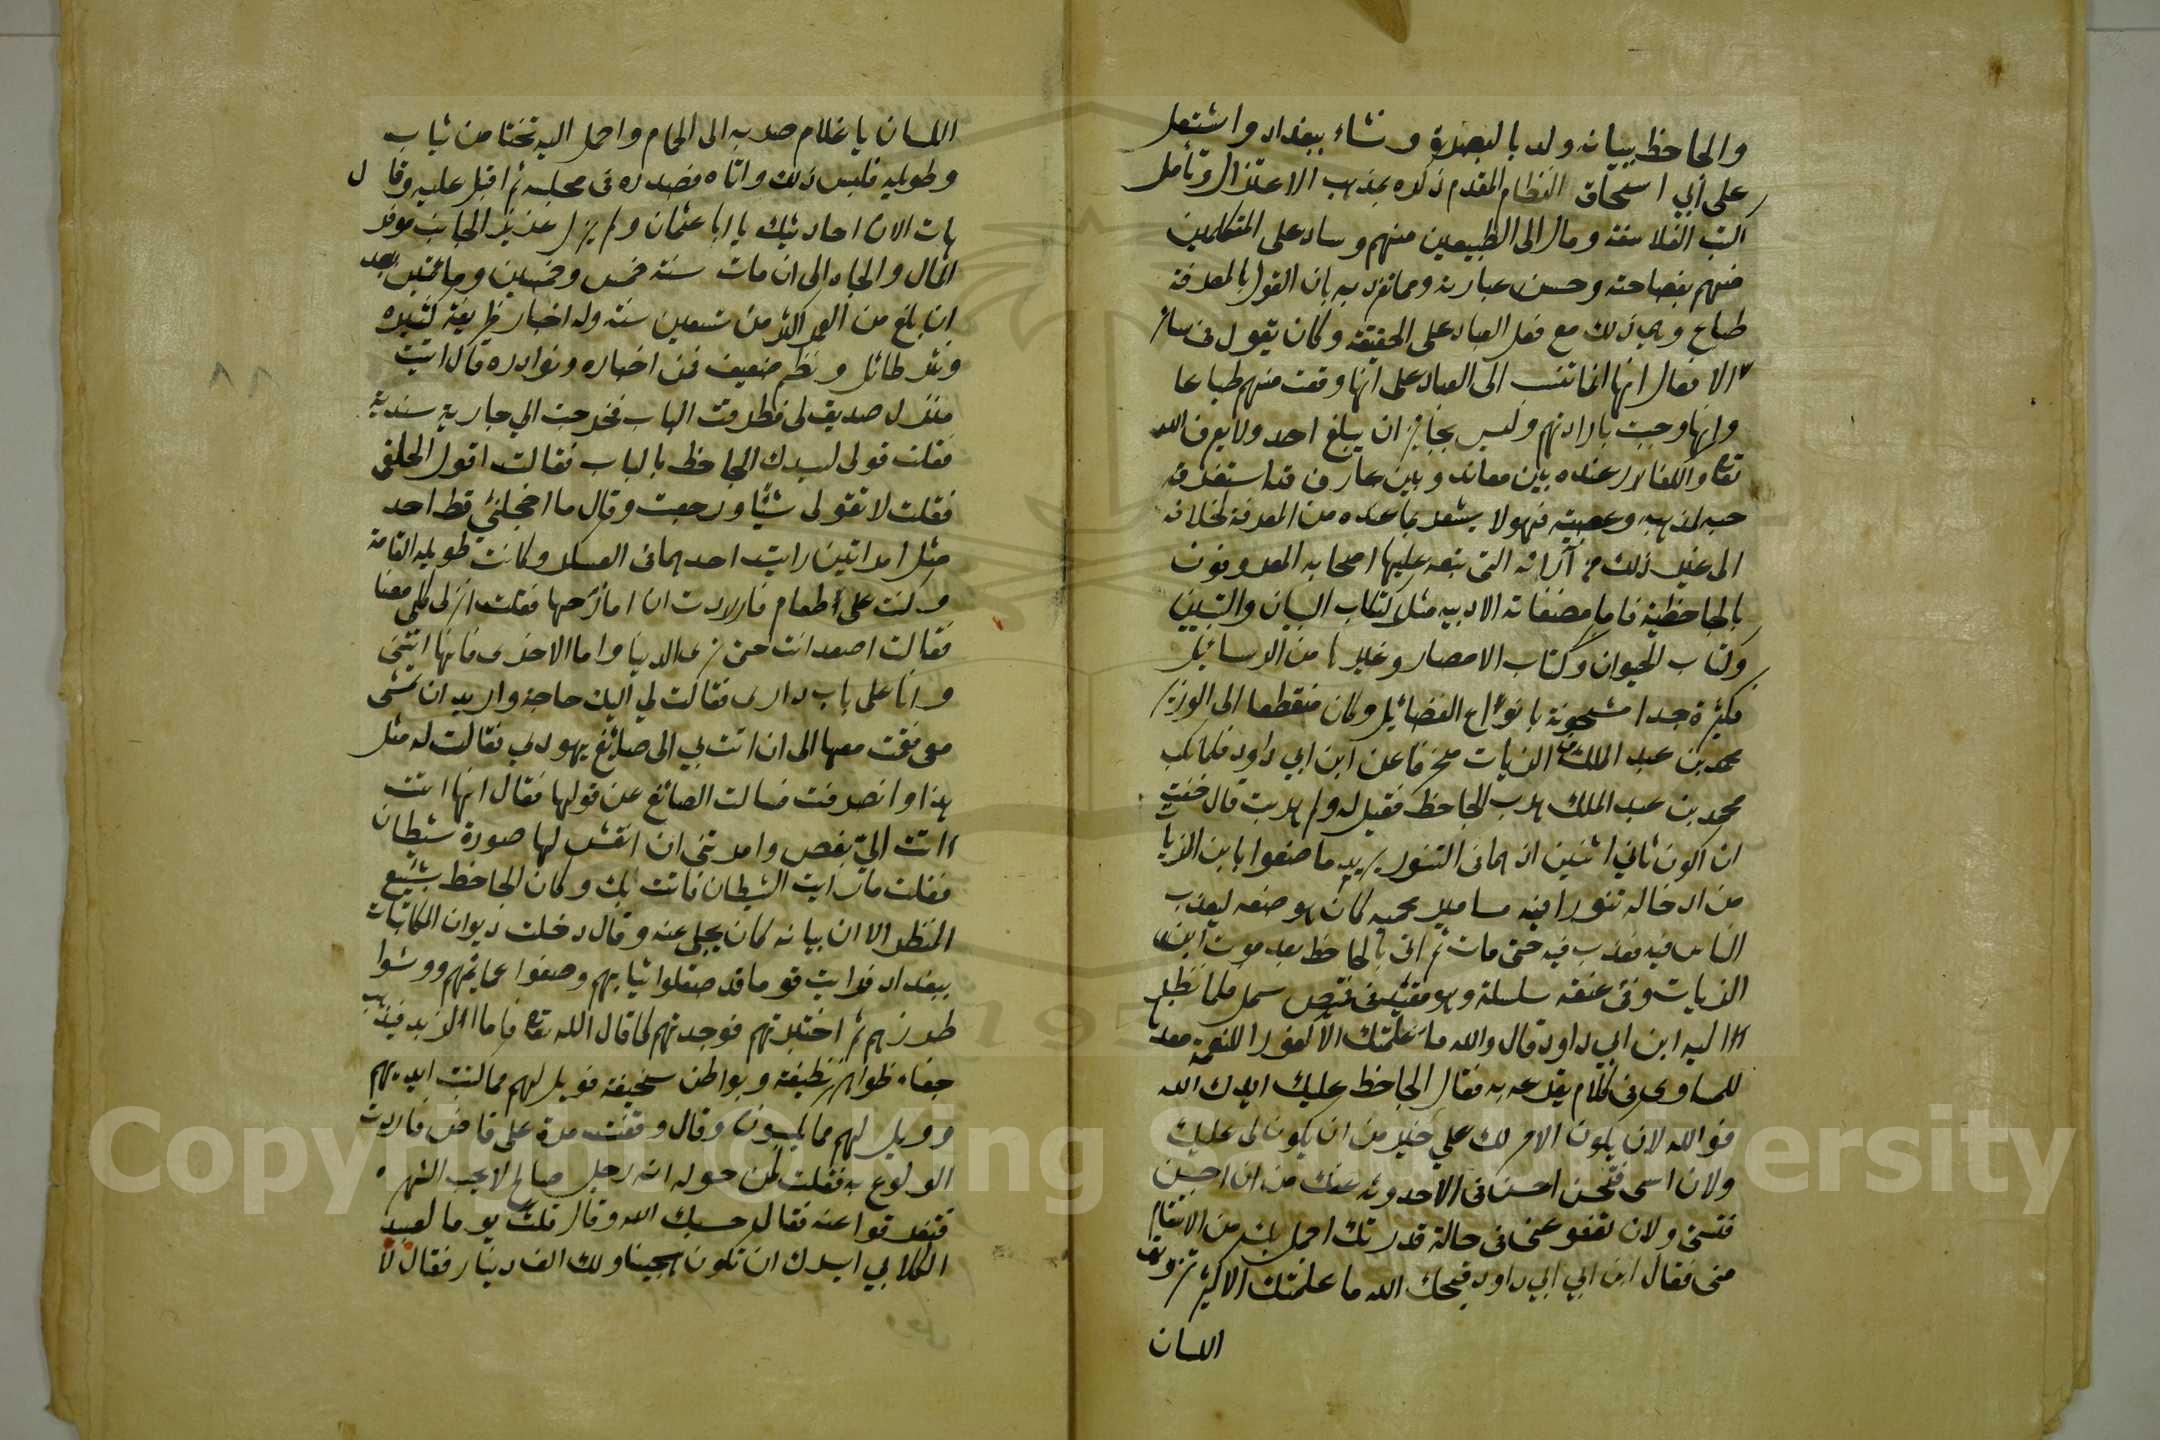 والجاحظ ببيانه ولد بالبصرة ونشاء ببغداد واشتغل
على أبي اسحاق النظام المقدم ذكره بمذهب الاعتزال وتأمل
كتب الفلاسفة ومال الى الطبيعيين منهم وساد على المتكلمين
منهم بفصاحته وحسن عبارته ومما تفرد به بان القول بالمعرفة
طباع وهي ذلك مع فعل العباد على الحقيقة وكان يقول في سائر
الافعال انها انما تنسب الى العباد على انها وقعت منهم طباعا
وانها وجبت بارادتهم وليس بجايز ان يبلغ احد ولا يعرف الله
تعا والكفار عنده بين معاند وبين عارف قد استغرقه
حبه لمذهبه وعصبيته فهو لا يشعر بما عنده من المعرفة بخلافه
الى غير ذلك من آرائه التي تبعه عليها اصحابه المعروفون
بالجاحظية فاما مصنفاته الادبيه مثل كتاب البيان والتبيين
وكتاب الحيوان وكتاب الامصار وغيرها من الرسائيل
فكثيرة جدا مشحونة بانواع الفضائيل وكان منقطعا الى الوزير
محمد بن عبد الملك الزيات منحرفا عن ابن ابي داود فلما نكب
محمد بن عبد الملك هرب الجاحظ فقيل له ولم هربت قال خفت
ان اكون ثاني اثنين اذ هما في التنور يريد ما صنعوا بابن الزيات
من ادخاله تنورا فيه مسامير محميه كان هو صنعه ليعذب
الناس فيه فعذب فيه حتى مات ثم اتى بالجاحظ بعد موت ابن
الزيات وفي عنقه سلسلة وهو مقيد في قميص سمل فلما نظر
اليه ابن ابي داود قال والله ما علمتك الا كفورا للنعمة معددا
للمساوى في كلام يقدعه به فقال الجاحظ عليك ايدك الله
فوالله لان يكون الامر لك علي خير من ان يكون لى عليك
ولان اسى فتحسن احسن في الاحدوثه عنك من ان احسن
فتسئ ولان تعفو عنى في حالة قدرتك اجمل بك من الانتقام
منى فقال ابن ابي داود قبحك الله ما علمتك الا كثير تزويق
اللسان
اللسان يا غلام صر به الى الحمام واحمل اليه تختا من ثياب
وطويله فلبس ذلك واتاه فصدره في مجلسه ثم اقبل عليه وقال
هات الان احاديثك يا ابا عثمان ولم يزل عزيز الجانب موفر
المال والجاه الى ان مات سنة خمس وخمسين ومائتين بعد
ان بلغ من العمر اكثر من تسعين سنة وله اخبار ظريفة كثيره
ونثر طائل ونظم ضعيف فمن اخباره ونوادره قال اتيت
منزل صديق لى فطرقت الباب فخرجت الي جارية سندية
فقلت قولى لسيدك الجاحظ بالباب فقالت اقول الحلقى
فقلت لا تقولى شيًا ورجعت وقال ما اخجلني قط احد
مثل امراتين رايت احدهما في العسكر وكانت طويله القامة
وكنت على طعام فاردت ان امازحها فقلت انزلى كلى معنا
فقالت اصعد انت حتى ترى الدنيا واما الاخرى فانها اتتنى
وانا على باب دارى فقالت لي اليك حاجة واريد ان تمشى
معى فقمت معها الى ان اتت بي الى صائغ يهودي فقالت له مثل
هذا وانصرفت فسالت الصائغ عن قولها فقال انها اتت
اتت اليّ بفص وامرتني ان انقش لها صورة شيطان
فقلت ما رايت الشيطان فاتت بك وكان الجاحظ بشيع
المنظر الا ان بيانه كان يجلي عنه وقال دخلت ديوان المكاتبات
ببغداد فرايت قوما قد صقلوا ثيابهم وصفوا عمايمهم ووشوا
طرزهم ثم اختبرتهم فوجدتهم كما قال الله تعا فاما الزبد فيذهب
جفاء ظواهر نظيفة وبواطن سخيفة فويل لهم مما كتبت ايديهم
وويل لهم مما يكسبون وقال وقفت مرة على قاض فاردت
الولوع به فقلت لمن حوله انه رجل صالح لا يحب الشهره
فتفرقوا عنه فقال حسبك الله وقال قلت يوما لعبيد
الكلابي ايسرك ان تكون هجينا ولك الف دينار فقال لا